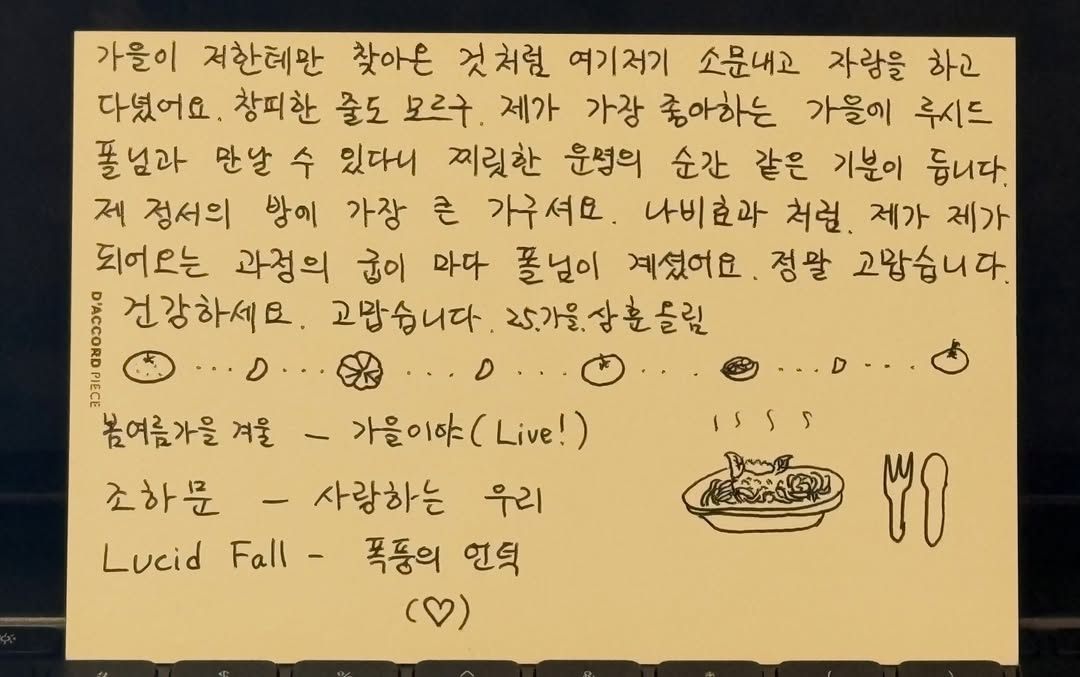 가을이 저한테만 찾아온 것처럼 여기저기 소문내고 자랑을 하고
다녔어요. 창피한 줄도 모르구. 제가 가장 좋아하는 가을에 루시드
폴님과 만날 수 있다니 찌릿한 운명의 순간 같은 기분이 듭니다.
제 정서의 방에 가장 큰 가구셔요. 나비효과 처럼. 제가 제가
되어오는 과정의 굽이 마다 폴님이 계셨어요. 정말 고맙습니다.
건강하세요. 고맙습니다. 25.가을.삼훈 들림
D'ACCORD PIECE
봄여름가을 겨울 – 가을이야 (Live!)
조하문 – 사랑하는 우리
Lucid Fall - 폭풍의 언덕
(♡)